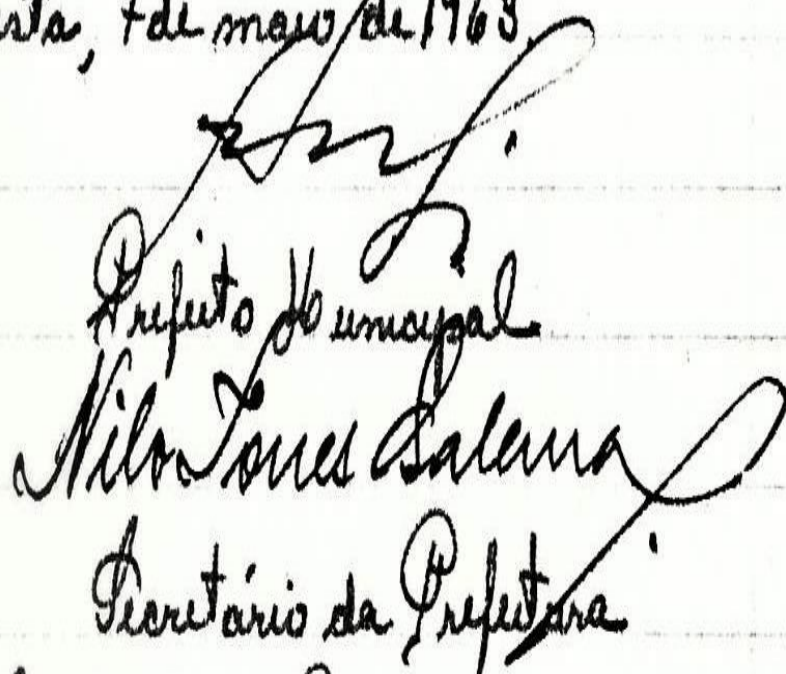 sta, 7 de maio de 1963.
Prefeito Municipal
Nilo Torres Salema
Secretário da Prefeitura